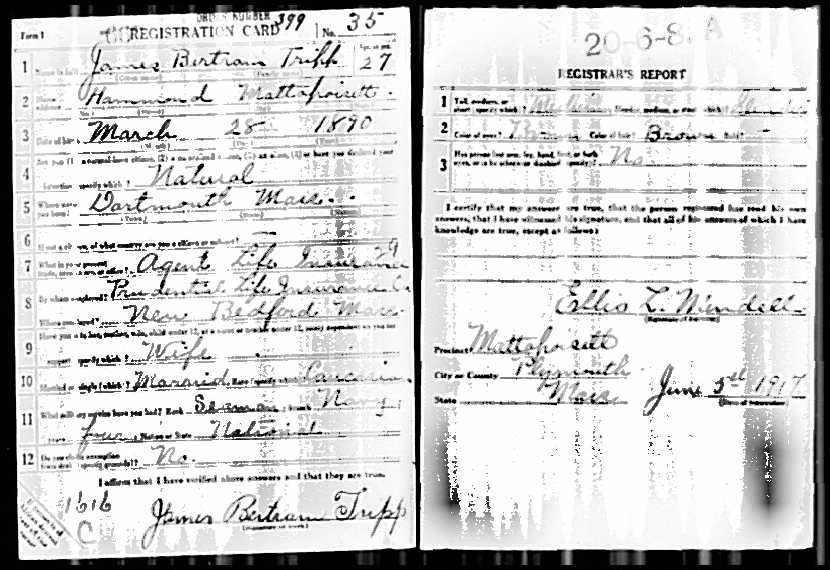 ORDER NUMBER 399
Form 1 REGISTRATION CARD No. 35
1 James Bertram Tripp Age, in yrs. 27
2 Hammond Mattapoisett.
3 Date of birth March 28 1890
4 Natural
specify which?
5 Dartmouth Mass.
6 If not a citizen, of what country are you a citizen or subject? —
7 What is your present trade, occupation, or office? Agent Life Insurance
8 By whom employed? Prudential Life Insurance Co
Where employed? New Bedford Mass.
9 Have you a father, mother, wife, child under 12, or a sister or brother under 12, solely dependent on you for
support (specify which)? Wife
10 Married or single (which)? Married Race (specify which)? Caucasian
11 What military service have you had? Rank Seaman; branch Navy
years four; Nation or State National
12 Do you claim exemption from draft (specify grounds)? No.
I affirm that I have verified above answers and that they are true.
1616
C
James Bertram Tripp
(Signature or mark)
20-6-8. A
REGISTRAR'S REPORT
1 Tall, medium, or short (specify which)? Medium Slender, medium, or stout (which)? Slender
2 Color of eyes? Color of hair? Brown Bald? —
3 Has person lost arm, leg, hand, foot, or both eyes, or is he otherwise disabled (specify)? No
I certify that my answers are true, that the person registered has read his own
answers, that I have witnessed his signature, and that all of his answers of which I have
knowledge are true, except as follows:
Ellis L. Mendell.
(Signature of registrar)
Precinct Mattapoisett
City or County Plymouth
State Mass June 5th 1917
(Date of registration)